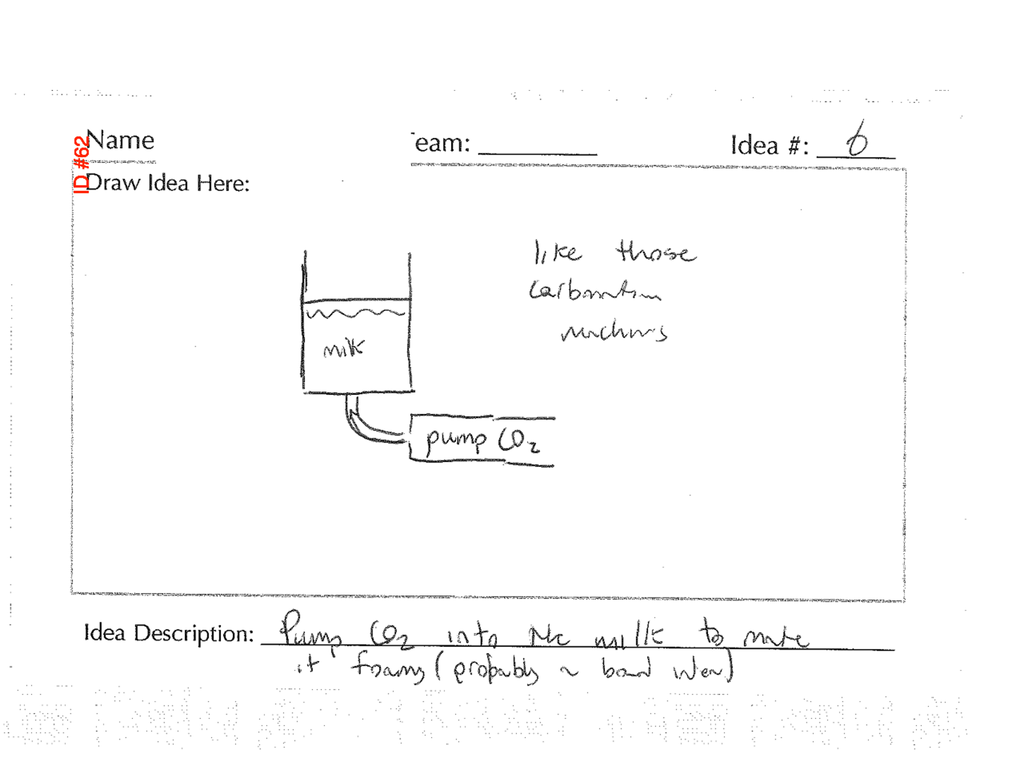 ID #62
Name eam: Idea #: 6
Draw Idea Here:
like those
carbonation
machines
milk
pump CO2
Idea Description: Pump CO2 into the milk to make
it foamy (probably a bad idea)